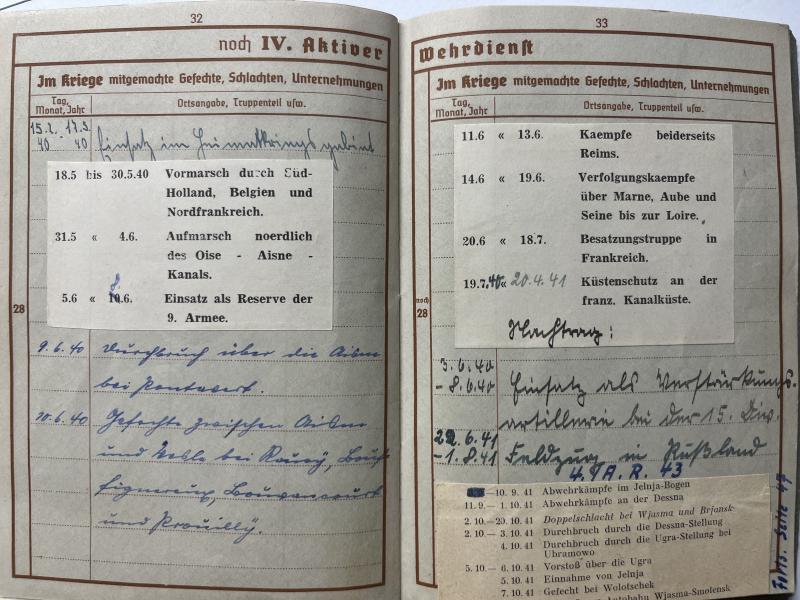 32
noch IV. Aktiver
Im Kriege mitgemachte Gefechte, Schlachten, Unternehmungen
Tag, Monat, Jahr
Ortsangabe, Truppenteil usw.
15.2. - 17.5.
40 40 Einsatz im Heimatkriegsgebiet
18.5 bis 30.5.40 Vormarsch durch Süd-
Holland, Belgien und
Nordfrankreich.
31.5 « 4.6. Aufmarsch noerdlich
des Oise - Aisne -
Kanals.
5.6 « 8.6. Einsatz als Reserve der
9. Armee.
28
9.6.40 Durchbruch über die Aisne
bei Pontavert.
10.6.40 Gefechte zwischen Aisne
und Vesle bei Roucy,
und Prouilly.
33
Wehrdienst
Im Kriege mitgemachte Gefechte, Schlachten, Unternehmungen
Tag, Monat, Jahr
Ortsangabe, Truppenteil usw.
11.6 « 13.6. Kaempfe beiderseits
Reims.
14.6 « 19.6. Verfolgungskaempfe
über Marne, Aube und
Seine bis zur Loire.
20.6 « 18.7. Besatzungstruppe in
Frankreich.
19.7.40 « 20.4.41 Küstenschutz an der
franz. Kanalküste.
noch
28
Nachtrag:
5.6.40
- 8.6.40 Einsatz als Verstärkungs-
artillerie bei der 15. Div.
22.6.41
- 1.8.41 Feldzug in Rußland
4. / A. R. 43
— 10. 9. 41 Abwehrkämpfe im Jelnja-Bogen
11. 9. — 1. 10. 41 Abwehrkämpfe an der Dessna
2. 10. — 20. 10. 41 Doppelschlacht bei Wjasma und Brjansk
2. 10. — 3. 10. 41 Durchbruch durch die Dessna-Stellung
4. 10. 41 Durchbruch durch die Ugra-Stellung bei
Ubramowo
5. 10. — 6. 10. 41 Vorstoß über die Ugra
5. 10. 41 Einnahme von Jelnja
7. 10. 41 Gefecht bei Wolotschek
Autobahn Wjasma-Smolensk
Forts. Seite 47